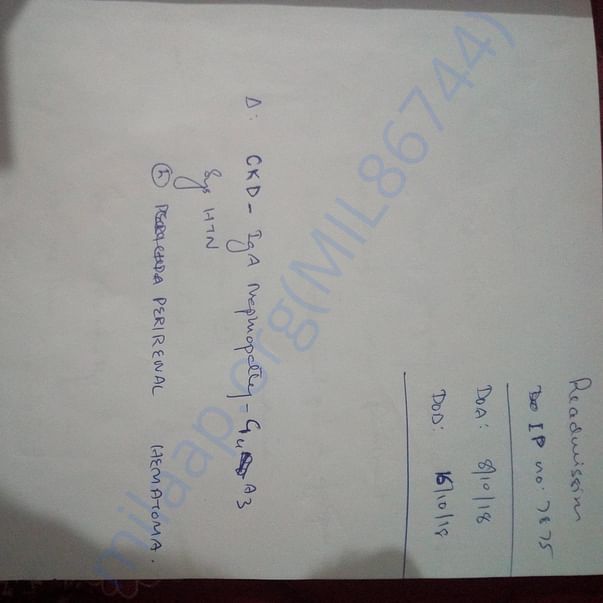 Readmission
IP no: 7875
DOA: 8/10/18
DOD: 16/10/18
Δ: CKD - IgA Nephropathy - G4 A3
Sys HTN
(L) PERIRENAL HEMATOMA.
milaap.org(MIL86744)